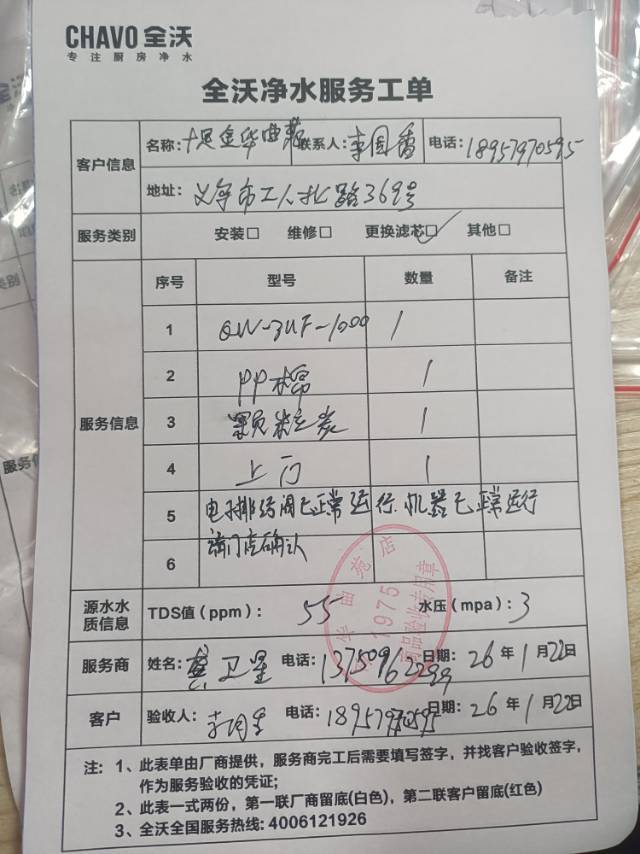 CHAVO 全沃
专注厨房净水
全沃净水服务工单
客户信息
名称: 十足金华曲苑 联系人: 李国香 电话: 18957970595
地址: 义乌市工人北路369号
服务类别 安装□ 维修□ 更换滤芯☑ 其他□
服务信息
序号 型号 数量 备注
1 QW-3UF-1000 1
2 PP棉 1
3 颗粒炭 1
4 上门 1
5 电子排污阀已正常运行.机器已正常运行
6 请门店确认
华曲苑店
1975
商品验收专用章
源水水质信息 TDS值(ppm): 55 水压(mpa): 3
服务商 姓名: 龚卫星 电话: 13750962299 日期: 26年1月22日
客户 验收人: 电话: 18957970595 日期: 26年1月22日
注: 1、此表单由厂商提供，服务商完工后需要填写签字，并找客户验收签字，
作为服务验收的凭证;
2、此表一式两份，第一联厂商留底(白色)，第二联客户留底(红色)
3、全沃全国服务热线: 4006121926